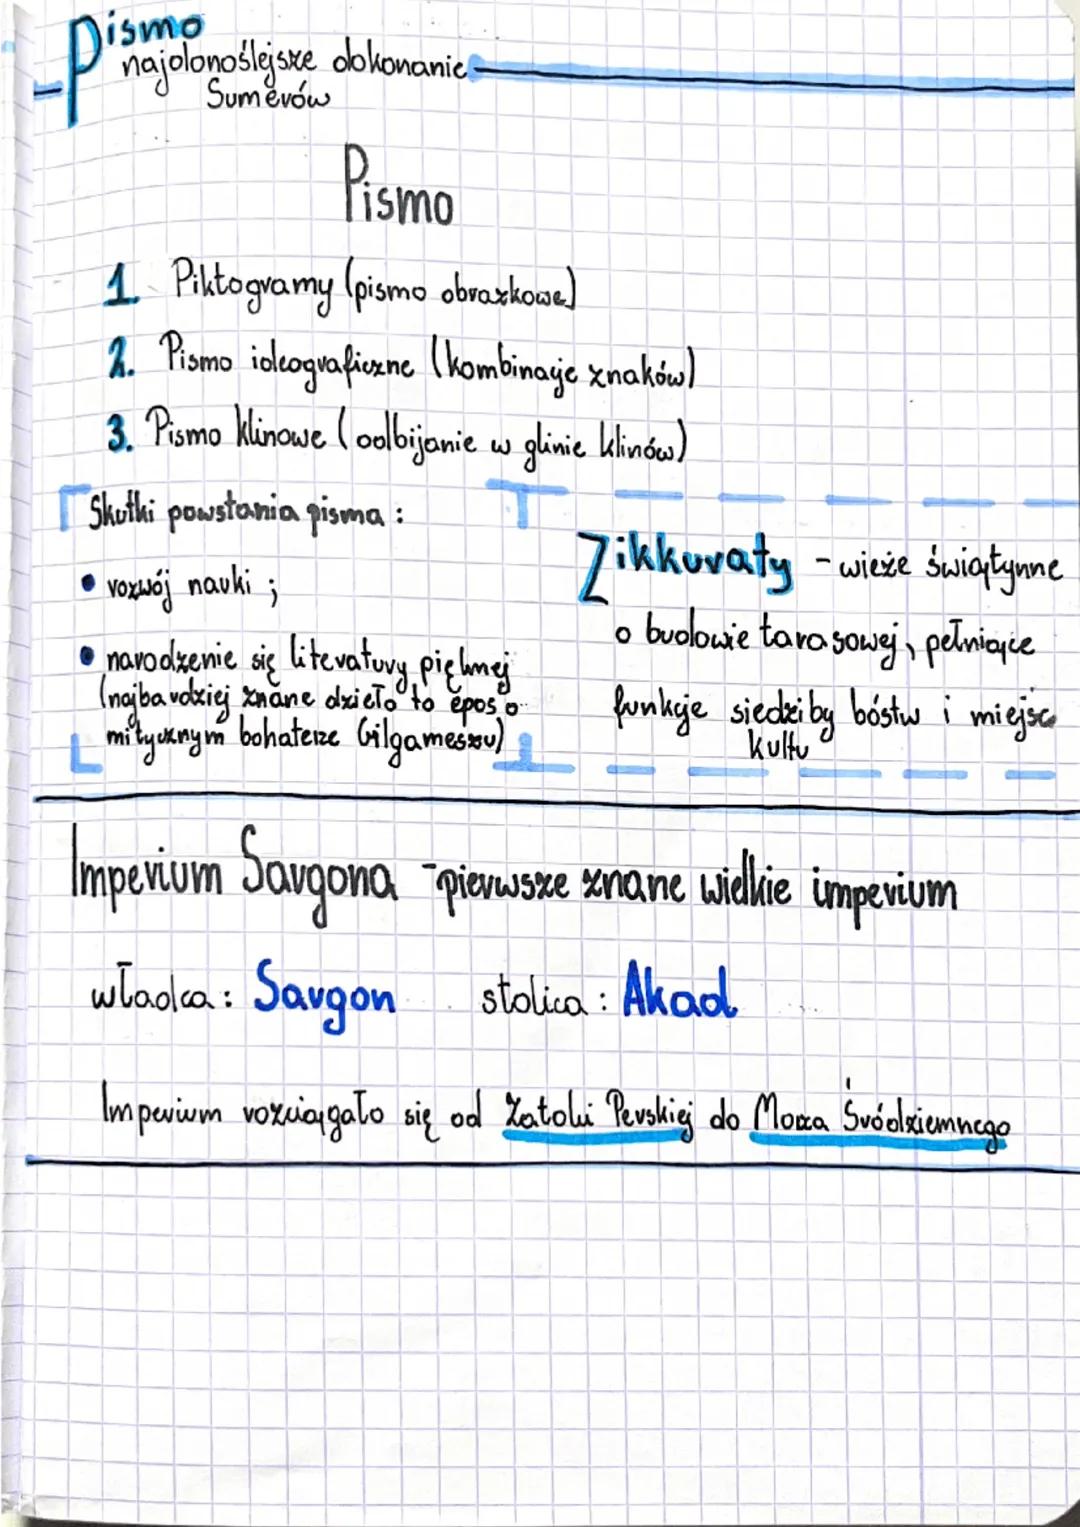 Pismo
najdonoślejsze dokonanie
Sumerów
Pismo
1. Piktogramy (pismo obrazkowe)
2. Pismo ideograficzne (kombinacje znaków)
3. Pismo klinowe (odbijanie w glinie klinów)
Skutki powstania pisma:
• rozwój nauki;
• narodzenie się literatury pięknej
(najbardziej znane dzieło to epos o
mitycznym bohaterze Gilgameszu)
Zikkuraty - wieże świątynne
o budowie tarasowej, pełniące
funkcje siedziby bóstw i miejsc
kultu
Imperium Sargona - pierwsze znane wielkie imperium
władca: Sargon stolica: Akad
Imperium rozciągało się od Zatoki Perskiej do Morza Śródziemnego